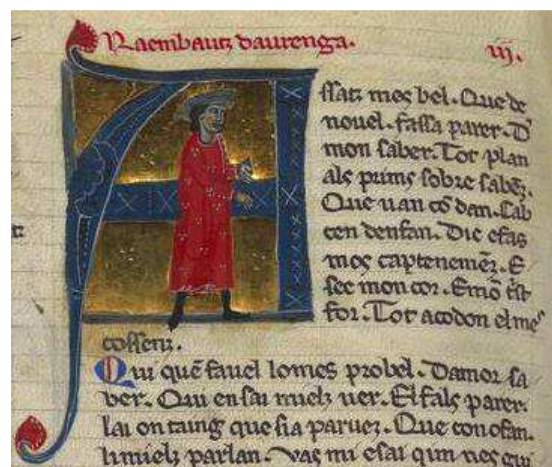 Raembautz daurenga. iij.
Assatz mes bel. Que de
nouel. fassa parer. D
mon saber. Tot plan
als prims sobre sabēz.
Que uan cō dan. Cab
ten denfan. Dic efas
mos captenemēz. E
sec mon cor. Emō
for. Tot acodon el me
cossenz.
Qui quē fauel lomes probel. Damor sa
ber. Qui en sai mielz uer. El fals parer.
lai on taing que sia paruez. Que con ofan.
li mielz parlan. Vas mi esai qun nesci